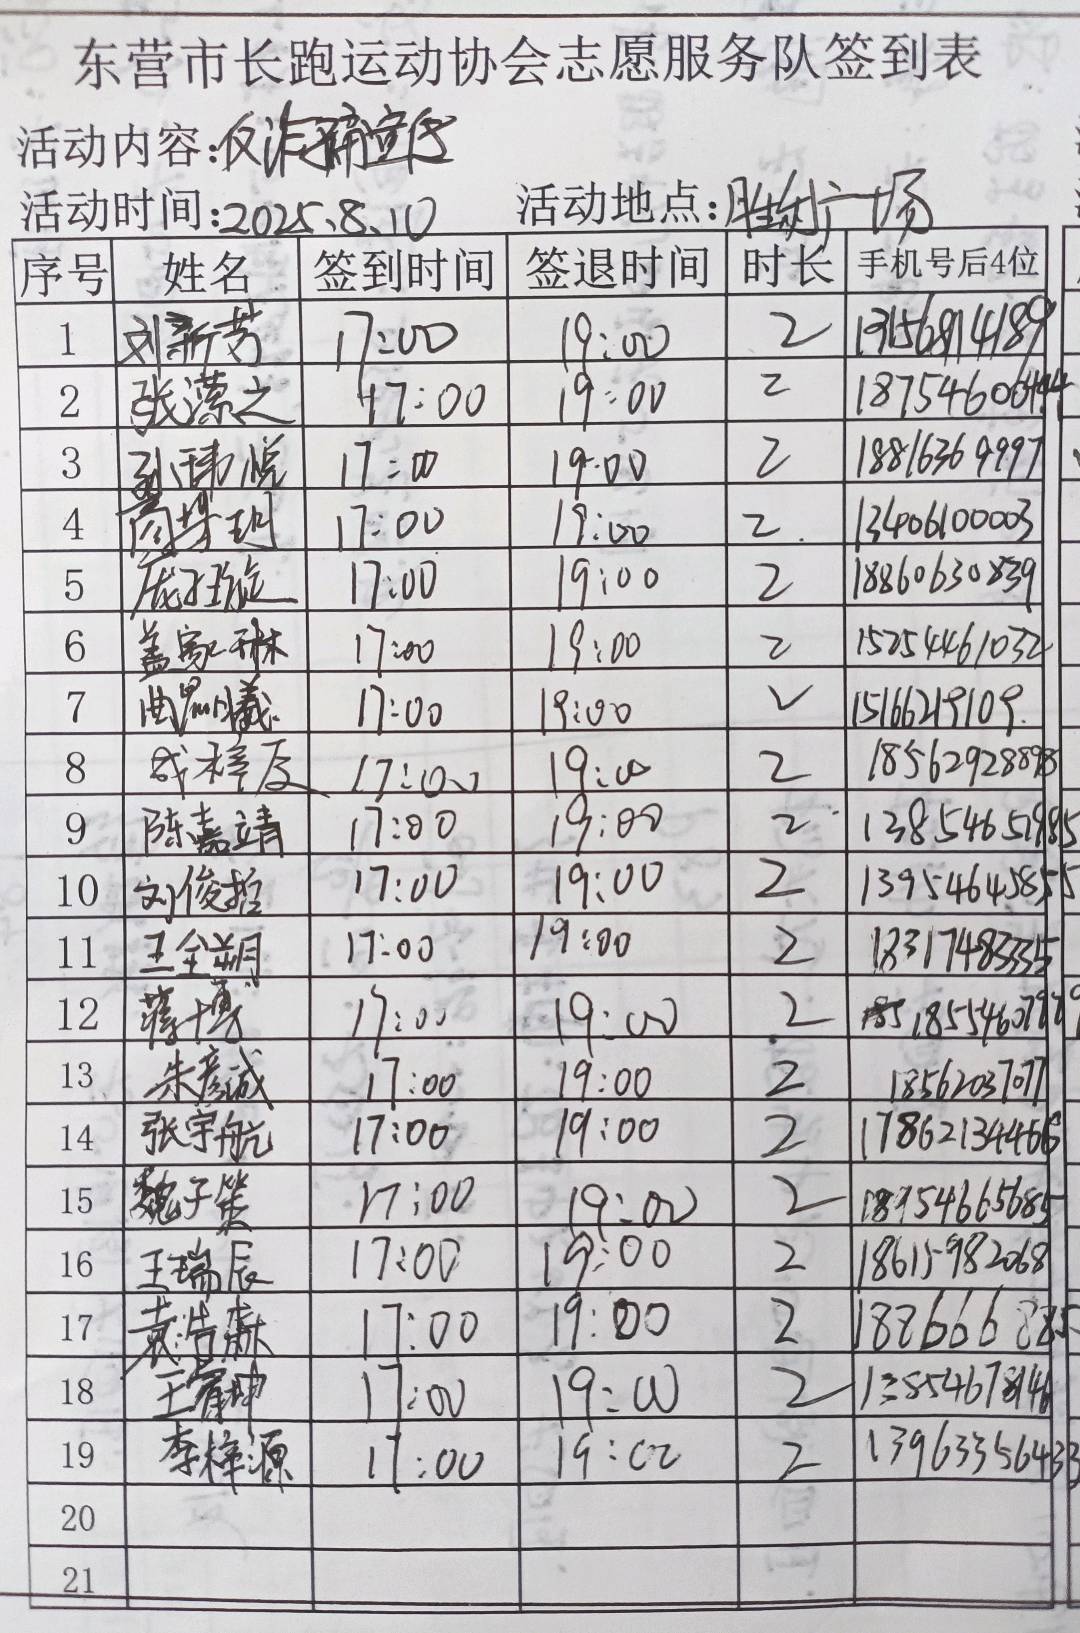 东营市长跑运动协会志愿服务队签到表
活动内容:反诈骗宣传
活动时间:2025.8.10 活动地点:胜利广场
序号 姓名 签到时间 签退时间 时长 手机号后4位
1 刘新芳 17:00 19:00 2 13156814189
2 张潆之 17:00 19:00 2
3 孙玮悦 17:00 19:00 2
4 17:00 19:00 2 13406100003
5 17:00 19:00 2 18860630839
6 盖家琳 17:00 19:00 2 15254461032
7 17:00 19:00 2 15166219109
8 成梓辰 17:00 19:00 2 18562928898
9 陈嘉靖 17:00 19:00 2 13854651985
10 刘俊哲 17:00 19:00 2 13954645855
11 王全朔 17:00 19:00 2 18317483335
12 蒋博 17:00 19:00 2
13 朱彦诚 17:00 19:00 2 18562037077
14 张宇航 17:00 19:00 2 17862134466
15 魏子 17:00 19:00 2 18754665685
16 王瑞辰 17:00 19:00 2 18615982068
17 袁浩森 17:00 19:00 2
18 17:00 19:00 2 13854678146
19 李梓源 17:00 19:00 2 13963356433
20
21